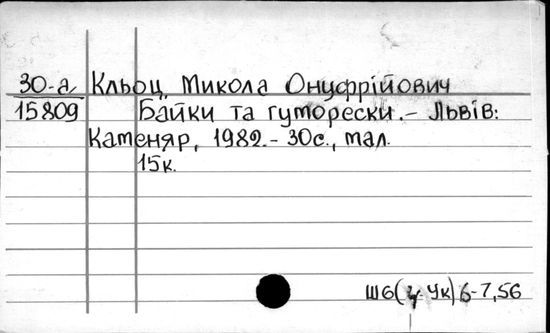 30-а Кльоц, Микола Онуфрійович
15809 Байки та гуморески.- Львів:
Каменяр, 1982.- 30с., мал.
15к.
Ш6(4 Ук)6-7,56